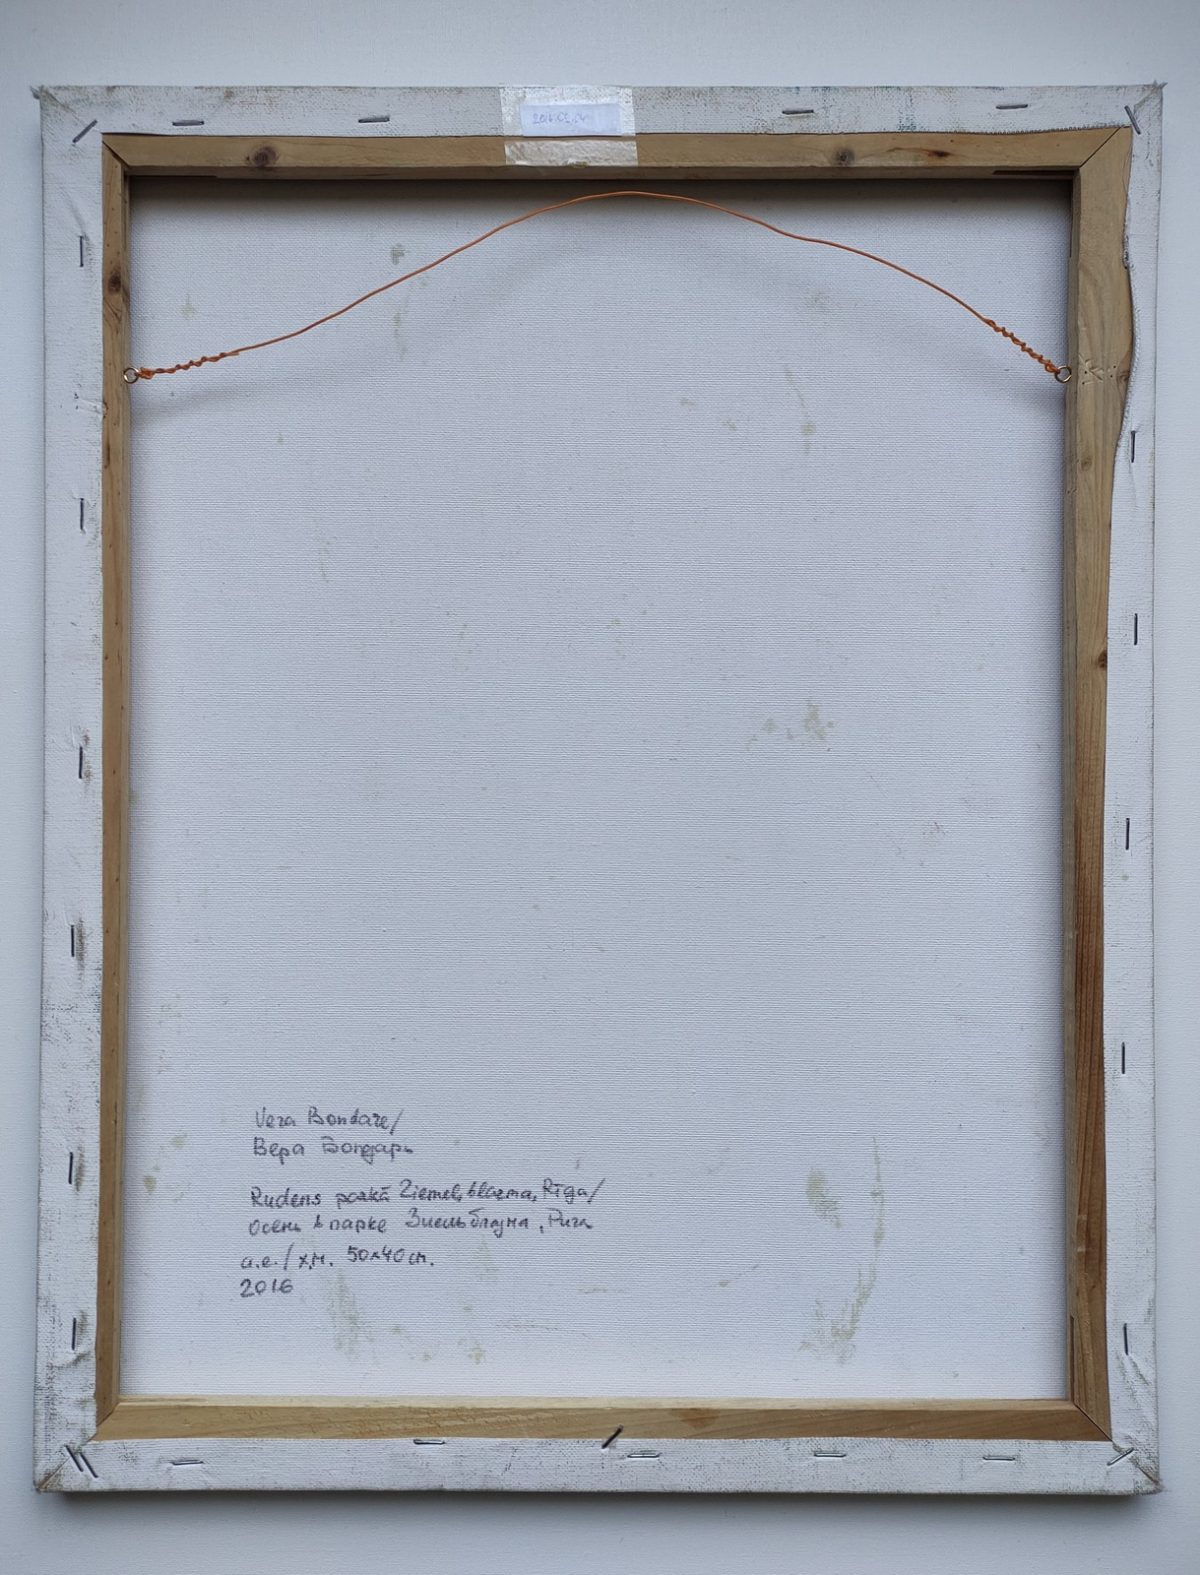 Vera Bondare/
Вера Бондарь
Rudens parkā Ziemeļblāzma, Rīga/
Осень в парке Зиельблазма, Рига
а.е./х.м. 50x40 cm.
2016